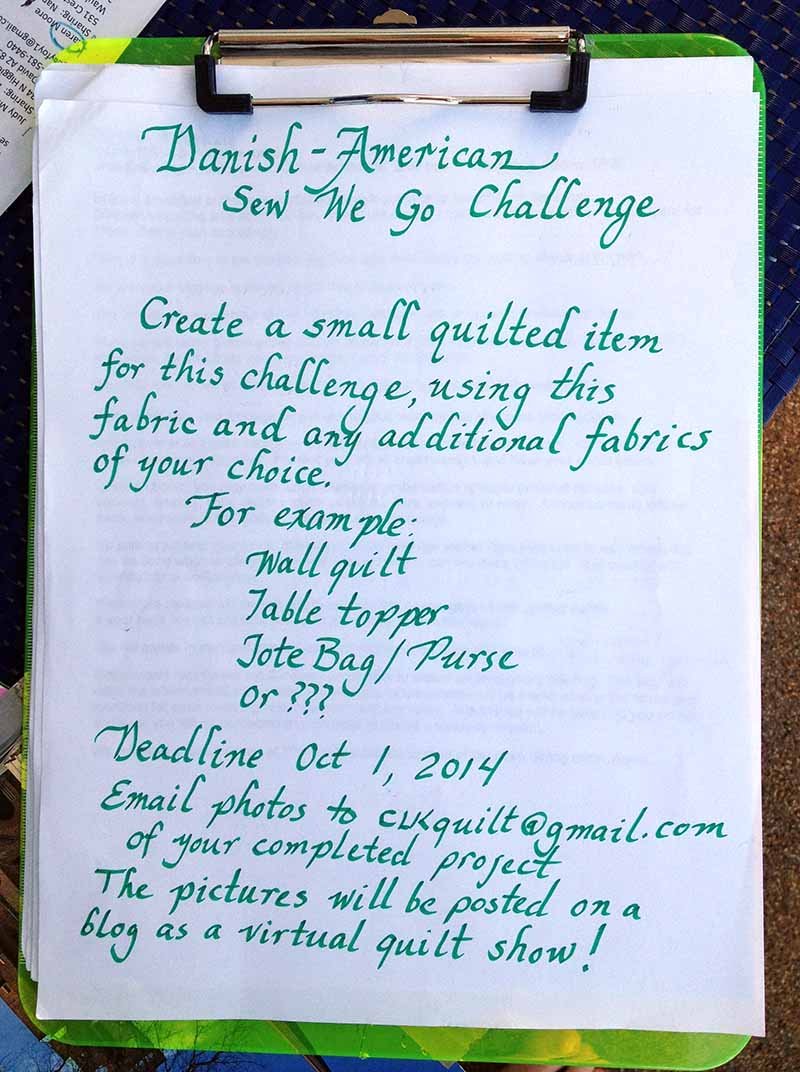 Danish-American
Sew We Go Challenge
Create a small quilted item
for this challenge, using this
fabric and any additional fabrics
of your choice.
For example:
Wall quilt
Table topper
Tote Bag/Purse
or ???
Deadline Oct 1, 2014
Email photos to CLKquilt@gmail.com
of your completed project
The pictures will be posted on a
blog as a virtual quilt show!